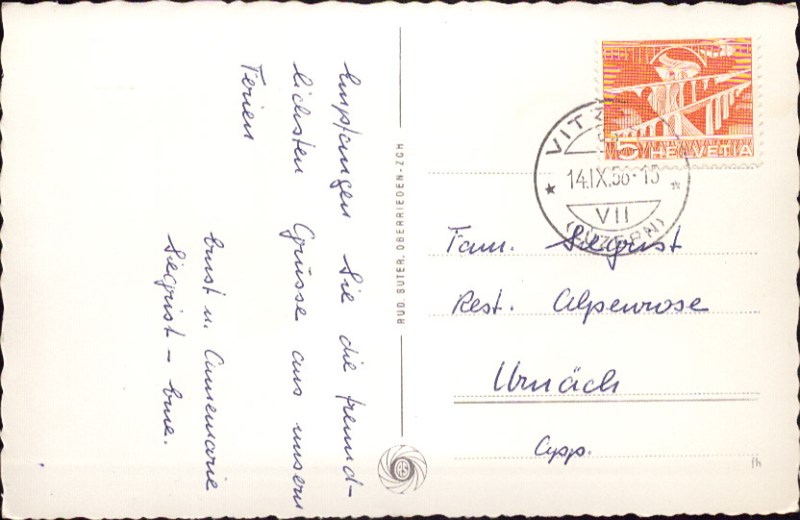 Empfangen Sie die freund-
lichsten Grüsse aus unsern
Ferien
Ernst u. Annemarie
Siegrist-
RUD. SUTER, OBERRIEDEN-ZCH
5 HELVETIA
VITZN
14.IX.56-15
VII
(LUZERN)
Fam. Siegrist
Rest. Alpenrose
Urnäch
App.